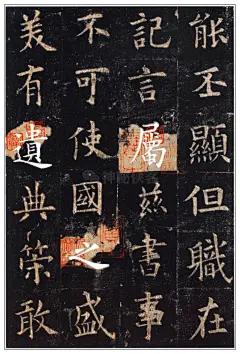 能丕顯但職在
記言屬茲書事
不可使國之盛
美有遺典榮敢